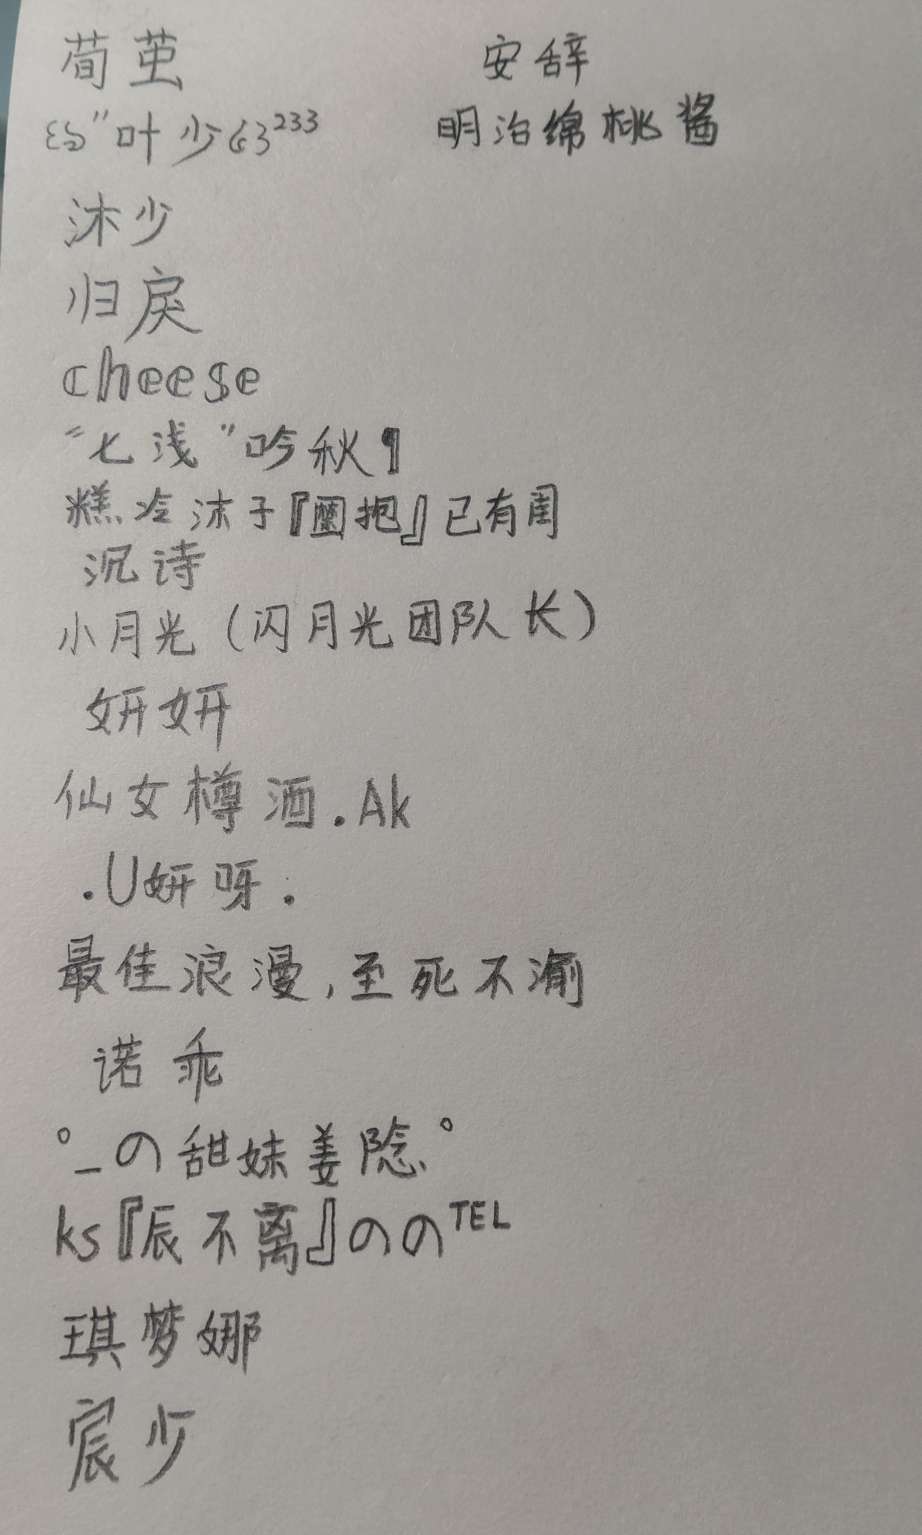 荀茧 安辞
"叶少63²³³ 明治绵桃酱
沐少
归戾
cheese
“七浅”吟秋¶
糕冷沐子『圈抱』已有周
沉诗
小月光（闪月光团队长）
妍妍
仙女樽酒.Ak
.U妍呀.
最佳浪漫,至死不渝
诺乖
°_の甜妹姜隐、°
ks『辰不离』ののᵀᴱᴸ
琪梦娜
宸少